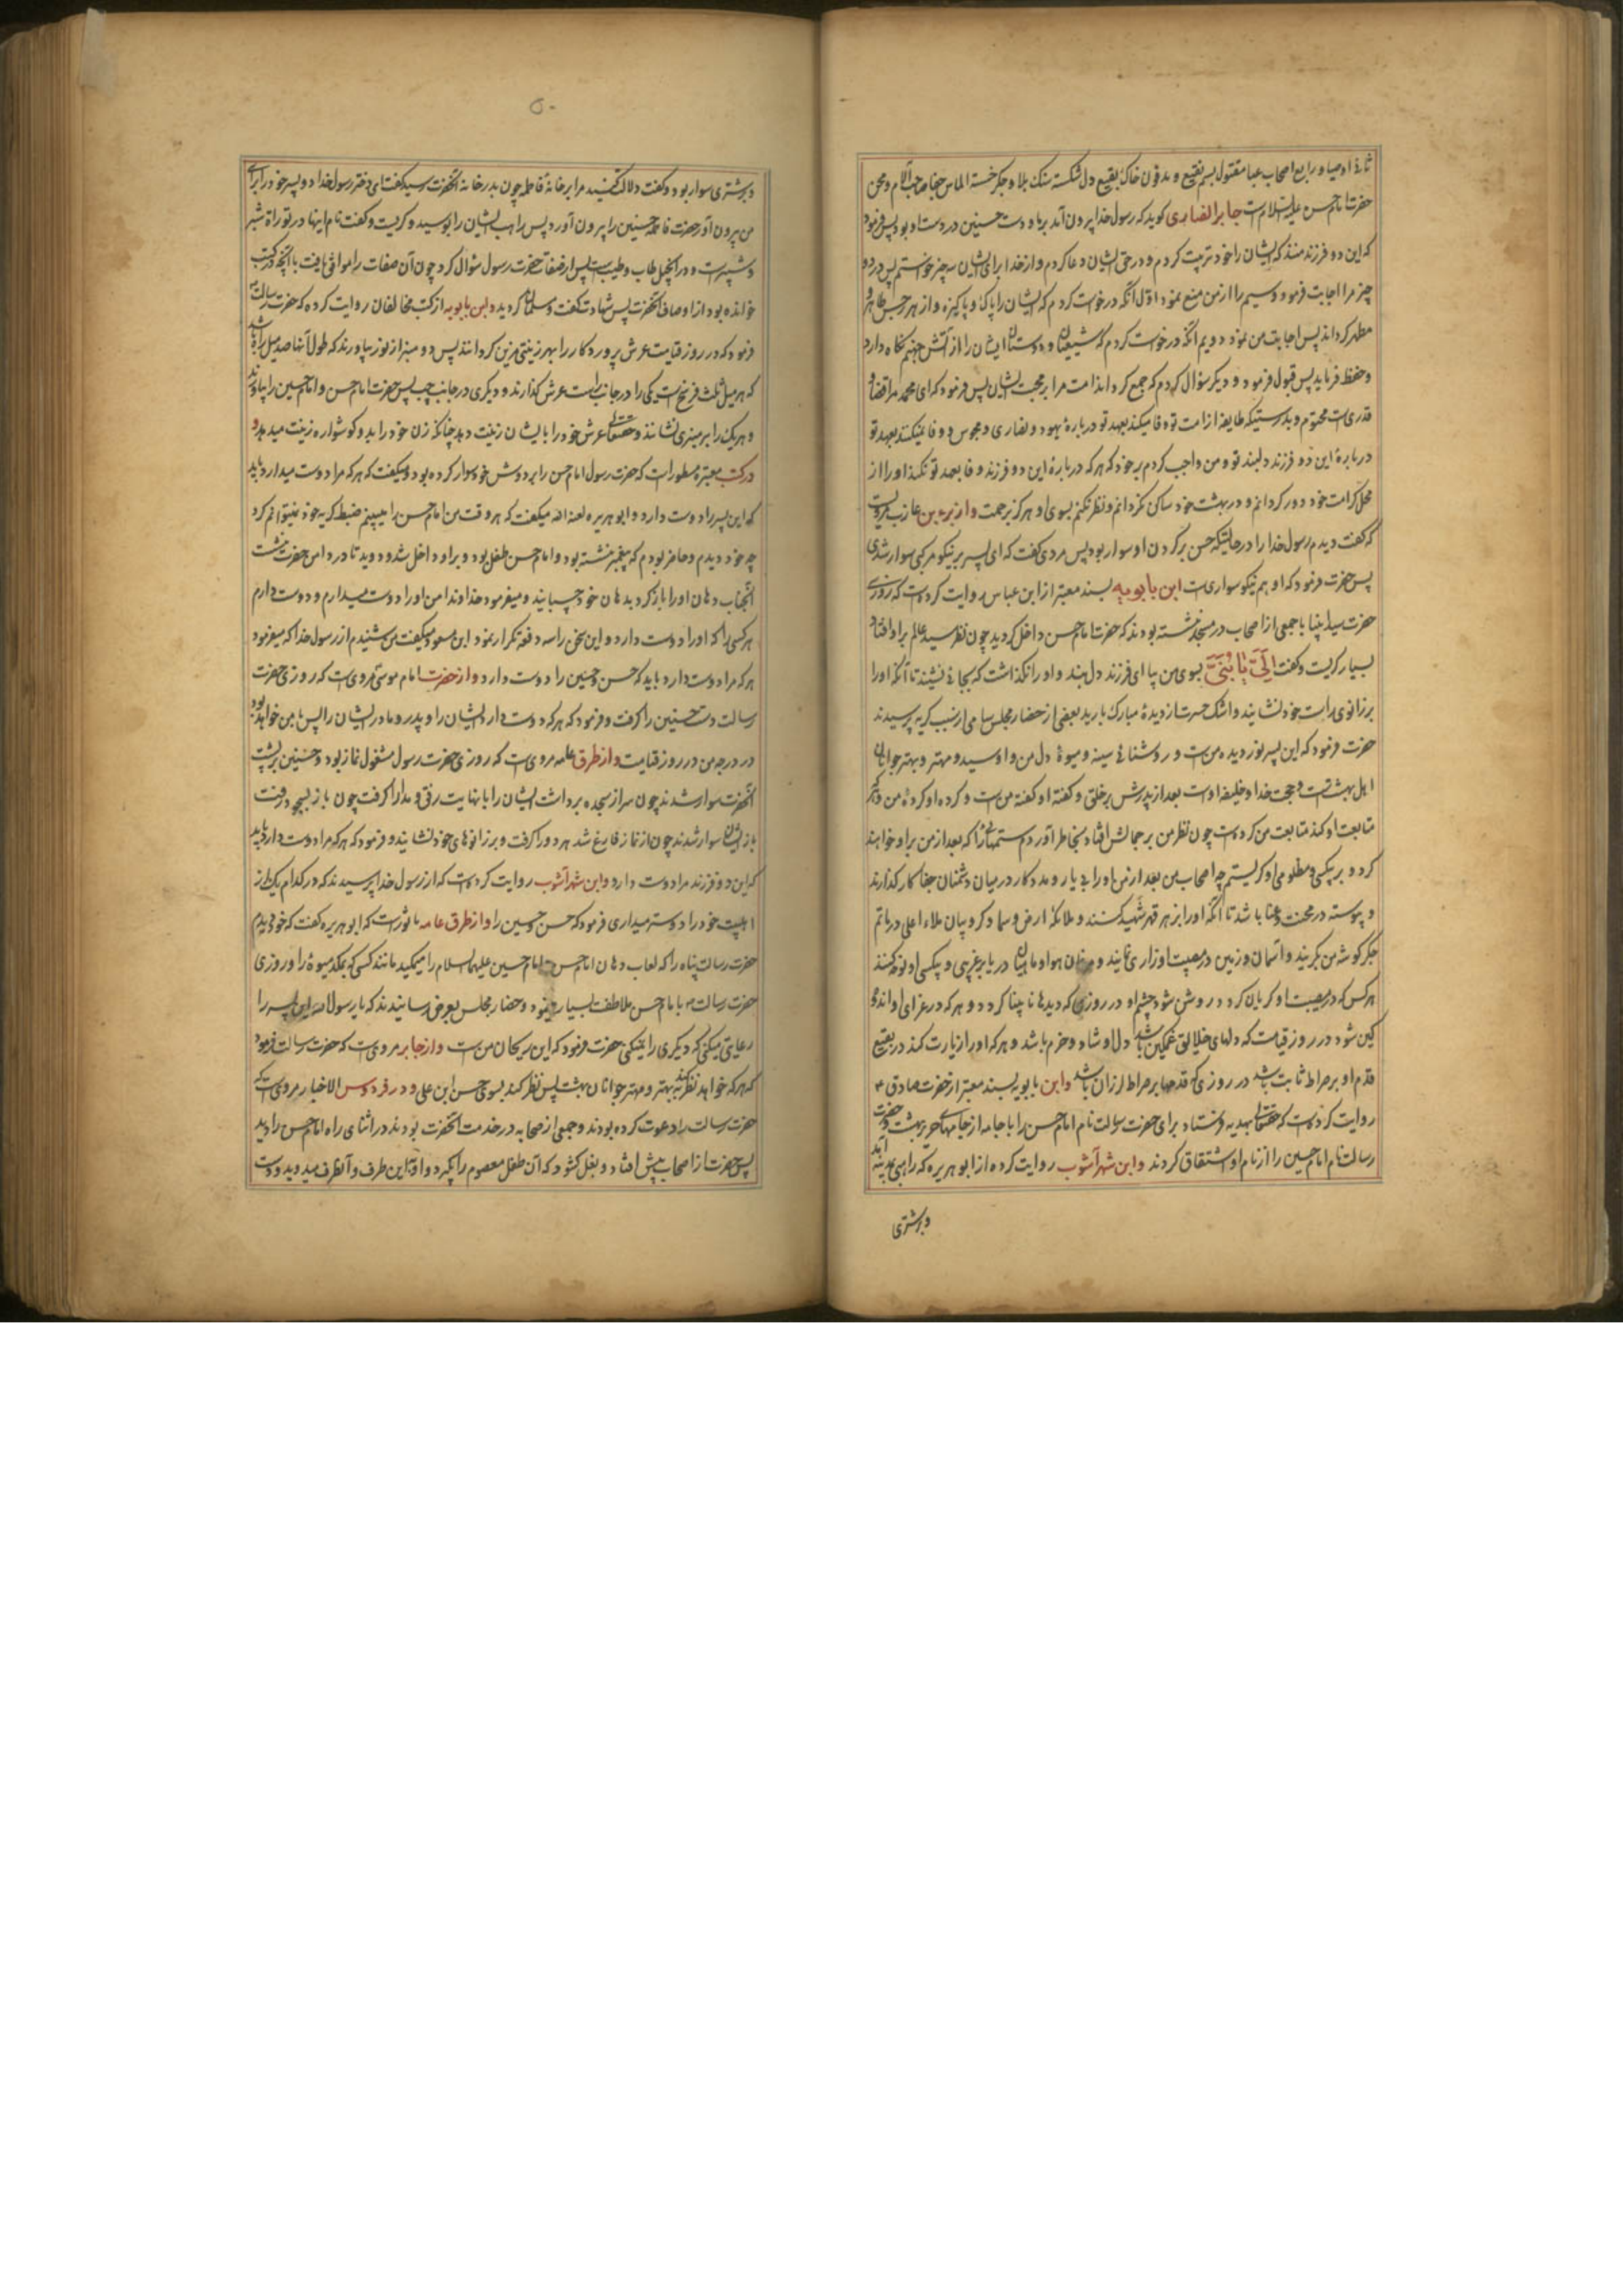 ثانی اوصیا و رابع اصحاب عبا مقتول بسم نقیع و مدفون خاک بقیع دل شکسته سنک بلا و جکر خسته الماس جفا صاحب آلام و محن
حضرت امام حسن علیه السلام است جابر انصاری کوید که رسول خدا بیرون آمد بر ما و دست حسنین در دست او بود پس فرمود
که این دو فرزند منند که ایشان را خود تربیت کردم و در حق ایشان دعا کردم و از خدا برای ایشان سه چیز خواستم پس در دو
چیز مرا اجابت فرمود و سیم را از من منع نمود اول آنکه درخواست کردم که ایشان را پاک و پاکیزه و از هر رجس طاهر و
مطهر کرداند پس اجابت من نمود دویم آنکه درخواست کردم که شیعیان و دوستان ایشان را از آتش جهنم نکاه دارد
و حفظ فرماید پس قبول فرمود و دیکر سؤال کردم که جمع کرداند امت مرا بر محبت ایشان پس فرمود که ای محمد مرا قضا و
قدری است محتوم و بدرستیکه طایفه از امت تو وفا میکنند بعهد تو درباره یهود و نصاری و مجوس و وفا نمیکنند بعهد تو
درباره این دو فرزند دلبند تو و من واجب کردم بر خود که هر که درباره این دو فرزند وفا بعهد تو نکند او را از
محل کرامت خود دور کردانم و در بهشت خود ساکن نکردانم و نظر نکنم بسوی او هرکز برحمت و از براء بن عازب مرویست
که کفت دیدم رسول خدا را در حالتیکه حسن بر کردن او سوار بود پس مردی کفت که ای پسر بر نیکو مرکبی سوار شدی
پس حضرت فرمود که او هم نیکو سواری است ابن بابویه بسند معتبر از ابن عباس روایت کرده است که روزی
حضرت سید انبیا با جمعی از اصحاب در مسجد نشسته بودند که حضرت امام حسن داخل کردید چون نظر سید عالم بر او افتاد
بسیار کریست و کفت اِلَیَّ یٰا بُنَیَّ بسوی من بیا ای فرزند دلبند و او را نکذاشت که بجائی نشیند تا آنکه او را
بر زانوی راست خود نشانید و اشک حسرت از دیده مبارک بارید بعضی از حضار مجلس سامی از سبب کریه پرسیدند
حضرت فرمود که این پسر نور دیده من است و روشنائی سینه و میوه دل من و او سید و مهتر و بهتر جوانان
اهل بهشت است و حجت خدا و خلیفه اوست بعد از پدرش بر خلق و کفته او کفته من است و کرده او کرده من و هرکه
متابعت او کند متابعت من کرده است چون نظر من بر جمالش افتاد بخاطر آوردم ستمهائی را که بعد از من بر او خواهند
کرد و بر بیکسی و مظلومی او کریستم چه اصحاب من بعد از من او را بی یار و مددکار در میان دشمنان جفاکار کذارند
و پیوسته در محنت و عنا باشد تا آنکه او را بزهر قهر شهید کنند و ملائکه ارض و سما و کروبیان ملاء اعلی در ماتم
جکر کوشه من بکریند و آسمان و زمین در مصیبت او زاری نمایند و مرغان هوا و ماهیان دریا بر غریبی و بیکسی او نوحه کنند
هر کس که در مصیبت او کریان کردد روشن شود چشم او در روزی که دیدها نابینا کردد و هر که در عزای او اندوه
کین شود در روز قیامت که دلهای خلایق غمکین باشد دل او شاد و خرم باشد و هر که او را زیارت کند در بقیع
قدم او بر صراط ثابت باشد در روزی که قدمها بر صراط لرزان باشد و ابن بابویه بسند معتبر از حضرت صادق ع
روایت کرده است که حقتعالی بهدیه فرستاد برای حضرت رسالت نام امام حسن را با جامه از جامهای حریر بهشت و حضرت
رسالت نام امام حسین را از نام او اشتقاق کردند و ابن شهر آشوب روایت کرده از ابو هریره که راهبی بمدینه آمد
و بر شتری
۵۰
و بر شتری سوار بود و کفت دلالت کنید مرا بر خانه فاطمه چون بدر خانه آنحضرت رسید کفت ای دختر رسول خدا دو پسر خود را برای
من بیرون آور حضرت فاطمه حسنین را بیرون آورد پس راهب ایشان را بوسید و کریست و کفت نام اینها در توراة شبر
و شبیر است و در انجیل طاب و طیب است پس از صفات حضرت رسول سؤال کرد چون آن صفات را موافق یافت با آنچه در کتب
خوانده بود از اوصاف آنحضرت پس شهادت کفت و مسلمان کردید و ابن بابویه از کتب مخالفان روایت کرده که حضرت رسالت
فرمود که در روز قیامت عرش پروردکار را بهر زینتی مزین کردانند پس دو منبر از نور بیاورند که طول آنها صد میل راه باشد
که هر میل ثلث فرسخ است یکی را در جانب راست عرش کذارند و دیکری در جانب چپ پس حضرت امام حسن و امام حسین را بیاورند
و هر یک را بر منبری نشانند و حقتعالی عرش خود را بایشان زینت دهد چنانکه زن خود را بدو کوشواره زینت میدهد و
در کتب معتبره مسطور است که حضرت رسول امام حسن را بر دوش خود سوار کرده بود و میکفت که هر که مرا دوست میدارد باید
که این پسر را دوست دارد و ابو هریره لعنه الله میکفت که هر وقت من امام حسن را میبینم ضبط کریه خود نمیتوانم کرد
چه خود دیدم و حاضر بودم که پیغمبر نشسته بود و امام حسن طفل بود و بر او داخل شد و دوید تا در دامن حضرت نشست
آنجناب دهان او را باز کرد بدهان خود چسبانید و میفرمود خداوندا من او را دوست میدارم و دوست دارم
هر کسی را که او را دوست دارد و این سخن را سه دفعه تکرار نمود و ابن مسعود میکفت من شنیدم از رسول خدا که میفرمود
هر که مرا دوست دارد باید که حسن و حسین را دوست دارد و از حضرت امام موسی مروی است که روزی حضرت
رسالت دست حسنین را کرفت و فرمود که هر که دوست دارد ایشان را و پدر و مادر ایشان را پس با من خواهد بود
در درجه من در روز قیامت و از طرق عامه مروی است که روزی حضرت رسول مشغول نماز بود و حسنین بر پشت
آنحضرت سوار شدند چون سر از سجده برداشت ایشان را با نهایت رفق و مدارا کرفت چون باز بسجده رفت
باز ایشان سوار شدند چون از نماز فارغ شد هر دو را کرفت و بر زانوهای خود نشانید و فرمود که هر که مرا دوست دارد باید
که این دو فرزند مرا دوست دارد و ابن شهر آشوب روایت کرده است که از رسول خدا پرسیدند که در کدام یک از
اهلبیت خود را دوستر میداری فرمود که حسن و حسین را و از طرق عامه مأثور است که ابو هریره کفت که خود دیدم
حضرت رسالت پناه را که لعاب دهان امام حسن و امام حسین علیهما السلام را میمکید مانند کسی که بمکد میوه را و روزی
حضرت رسالت با امام حسن ملاطفت بسیار مینمود و حضار مجلس بعرض رسانیدند که یا رسول الله این پسر را
رعایتی میکنی که دیکری را نمیکنی حضرت فرمود که این ریحان من است و از جابر مروی است که حضرت رسالت فرمود
که هر که خواهد نظر کند به بهتر و مهتر جوانان بهشت پس نظر کند بسوی حسن ابن علی و در فردوس الاخبار مروی است که
حضرت رسالت را دعوت کرده بودند و جمعی از صحابه در خدمت آنحضرت بودند در اثنای راه امام حسن را دید
پس حضرت از اصحاب پیش افتاد و بغل کشود که آن طفل معصوم را بکیرد و او باین طرف و آنطرف میدوید و دست